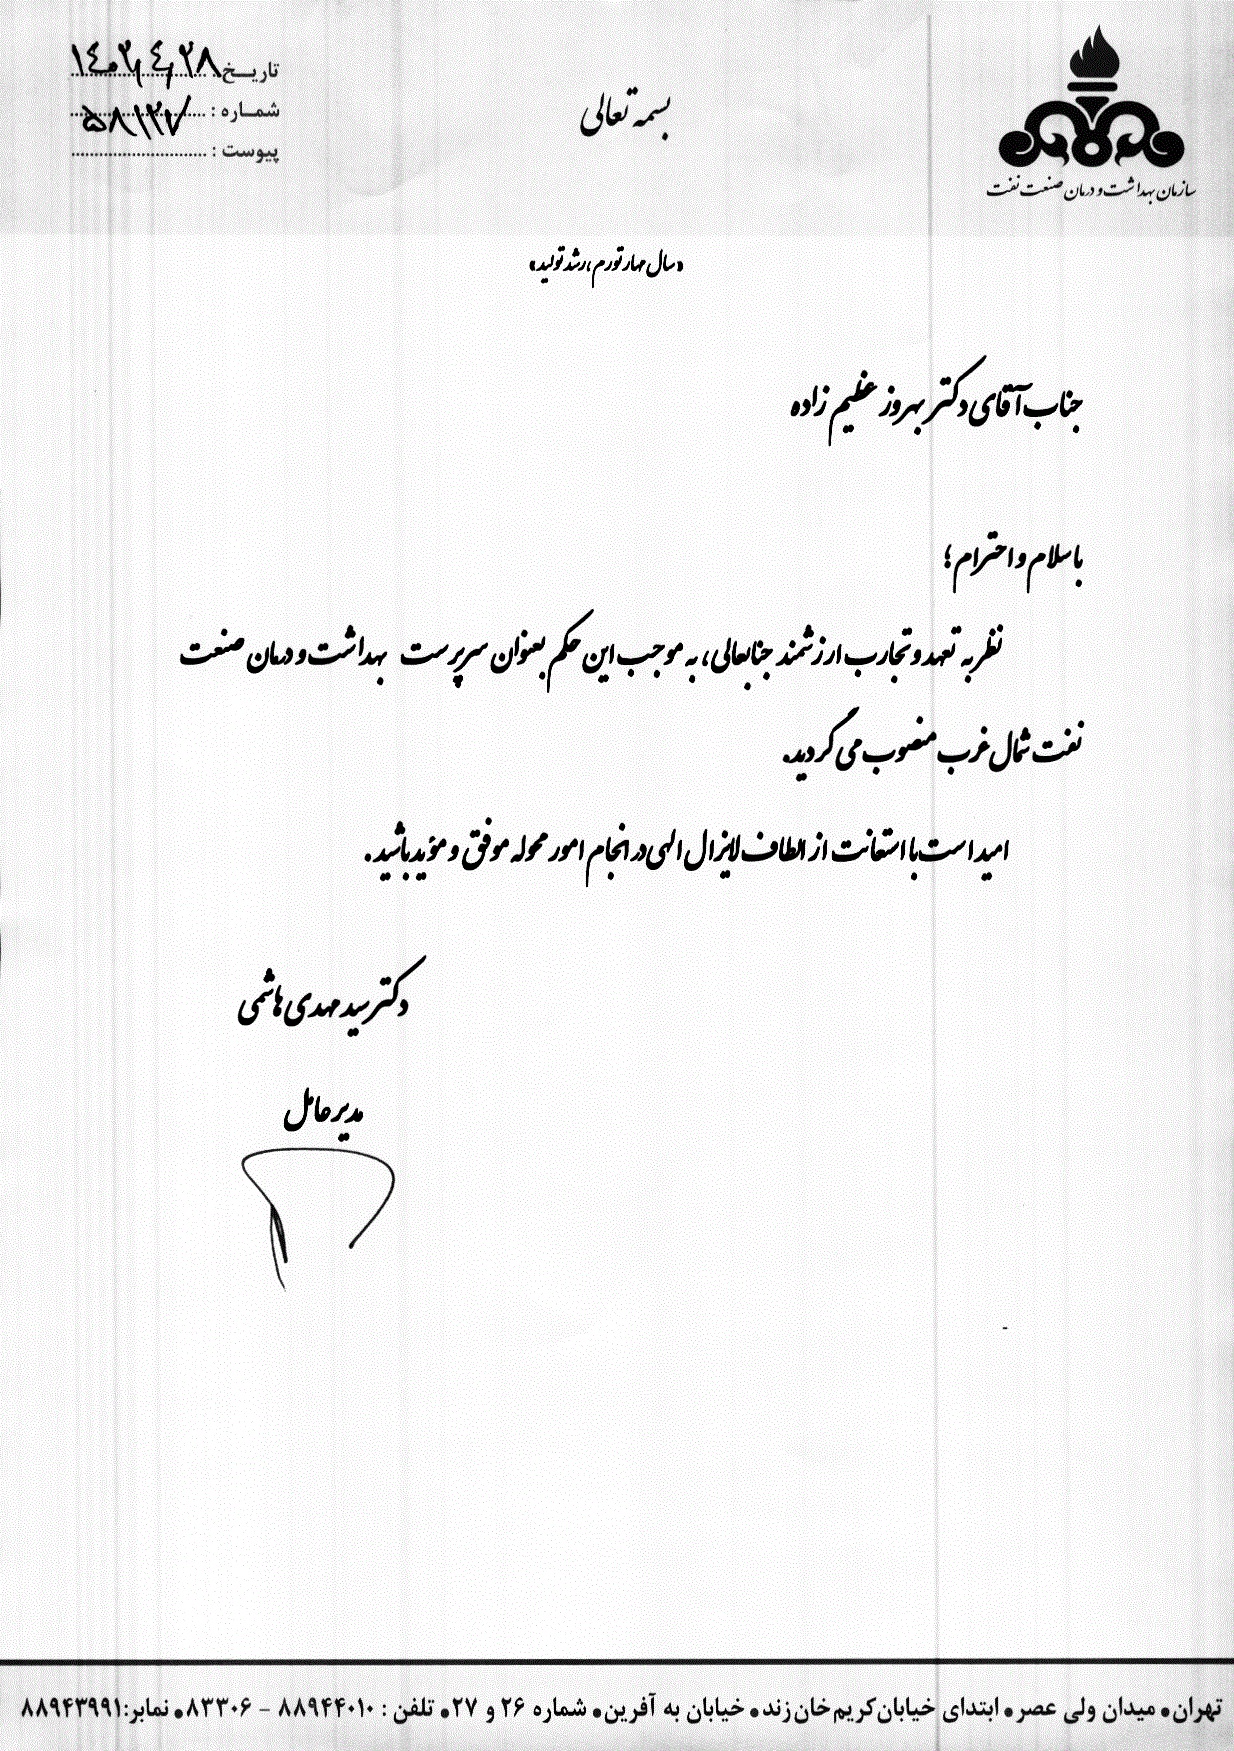 بسمه تعالی
تاریـخ: ۱۴۰۲٫۴٫۲۸
شمـاره : ۵۸۱۲۷
پیوست :
سازمان بهداشت و درمان صنعت نفت
«سال مهار تورم، رشد تولید»
جناب آقای دکتر بهروز عظیم زاده
با سلام و احترام؛
نظر به تعهد و تجارب ارزشمند جنابعالی، به موجب این حکم بعنوان سرپرست بهداشت و درمان صنعت
نفت شمال غرب منصوب می گردید.
امید است با استعانت از الطاف لایزال الهی در انجام امور محوله موفق و مؤید باشید.
دکتر سید مهدی هاشمی
مدیرعامل
تهران● میدان ولی عصر● ابتدای خیابان کریم خان زند● خیابان به آفرین● شماره ۲۶ و ۲۷● تلفن : ۸۸۹۴۴۰۱۰ - ۸۳۳۰۶● نمابر:۸۸۹۴۳۹۹۱